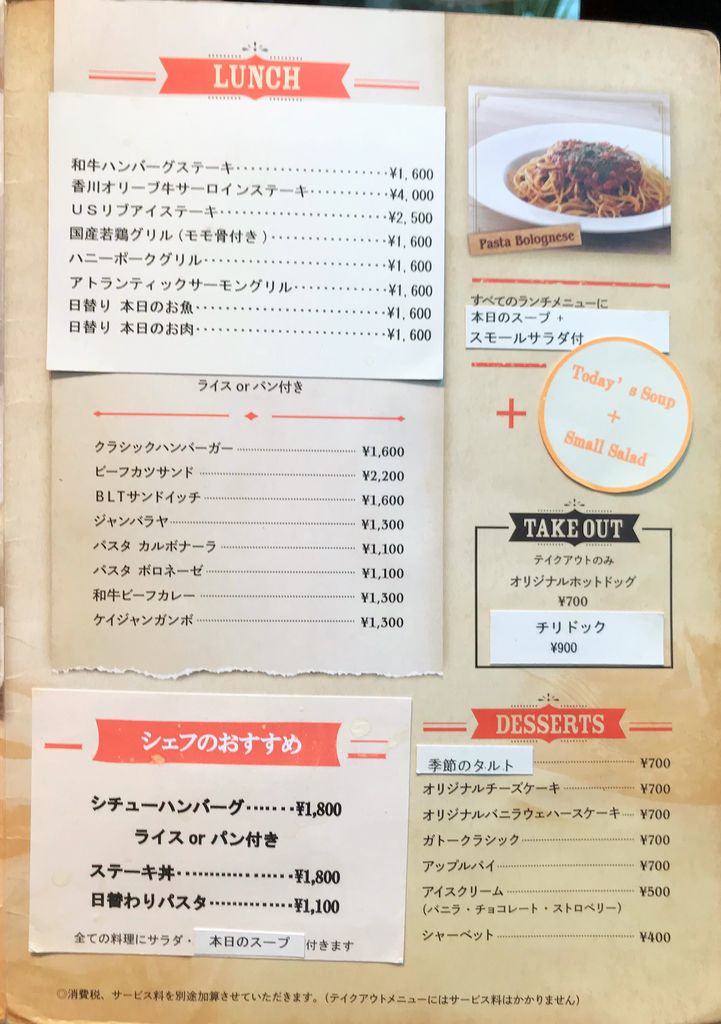 LUNCH
和牛ハンバーグステーキ·····················¥1,600
香川オリーブ牛サーロインステーキ···········¥4,000
USリブアイステーキ·······················¥2,500
国産若鶏グリル(モモ骨付き)···············¥1,600
ハニーポークグリル·······················¥1,600
アトランティックサーモングリル·············¥1,600
日替り 本日のお魚·························¥1,600
日替り 本日のお肉·························¥1,600
ライス or パン付き
クラシックハンバーガー ¥1,600
ビーフカツサンド ¥2,200
BLTサンドイッチ ¥1,600
ジャンバラヤ ¥1,300
パスタ カルボナーラ ¥1,100
パスタ ボロネーゼ ¥1,100
和牛ビーフカレー ¥1,300
ケイジャンガンボ ¥1,300
シェフのおすすめ
シチューハンバーグ·······¥1,800
ライス or パン付き
ステーキ丼·················¥1,800
日替わりパスタ············¥1,100
全ての料理にサラダ・本日のスープ 付きます
Pasta Bolognese
すべてのランチメニューに
本日のスープ +
スモールサラダ付
+
Today's Soup
+
Small Salad
TAKE OUT
テイクアウトのみ
オリジナルホットドッグ
¥700
チリドック
¥900
DESSERTS
季節のタルト ¥700
オリジナルチーズケーキ ¥700
オリジナルバニラウェハースケーキ ¥700
ガトークラシック ¥700
アップルパイ ¥700
アイスクリーム ¥500
(バニラ・チョコレート・ストロベリー)
シャーベット ¥400
◎消費税、サービス料を別途加算させていただきます。(テイクアウトメニューにはサービス料はかかりません)